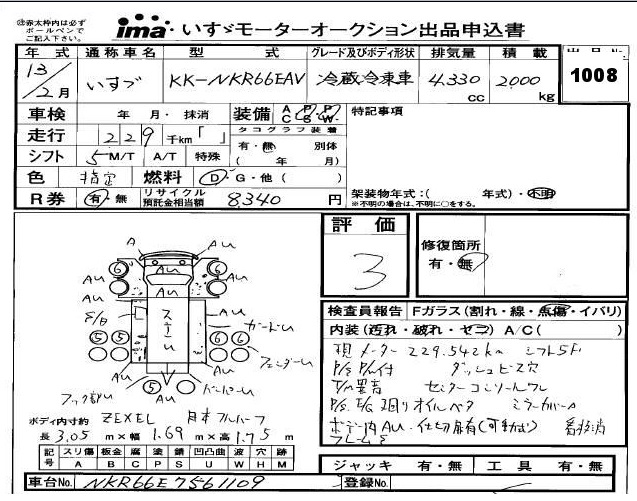 ㊟赤太枠内は必ず
ボールペンで
ご記入下さい。
ima いすゞモーターオークション出品申込書
年式 通称車名 型式 グレード及びボディ形状 排気量 積載 出品No.
13/2月 いすゞ KK-NKR66EAV 冷蔵冷凍車 4,330cc 2,000kg 1008
車検 年 月・抹消 装備 AC PS PW 特記事項
走行 229千km「 」 タコグラフ装着
有・無 別体
シフト 5 M/T A/T 特殊 ( 年 月)
色 指定 燃料 D・G・他( )
架装物年式:( 年式)・不明
※不明の場合は、不明に○をする。
R券 有・無 リサイクル預託金相当額 8,340円
評価
3
修復箇所
有・無
検査員報告 Fガラス(割れ・線・点傷・イバリ)
内装(汚れ・破れ・ヤニ) A/C( )
現メーター 229.542km シフト5F
P/S P/W付 ダッシュビス穴
T/M異音 センターコンソールワレ
P/S E/G廻りオイルベタ ミラーカバーA
ボデー内AU・仕切扉有(可動式)
A AU
6 AU 6
AU AU
AU AU
スミAU
5 5 6 6
AU AU
5
ボディ内寸約 ZEXEL 日本フルハーフ
長3.05m×幅1.69m×高1.75m
記号 スリ傷 板金 腐 塗 錆 凹凸曲 波 穴 跡
A B C P S U W H M
ジャッキ 有・無 工具 有・無
車台No. NKR66E7561109 登録No.